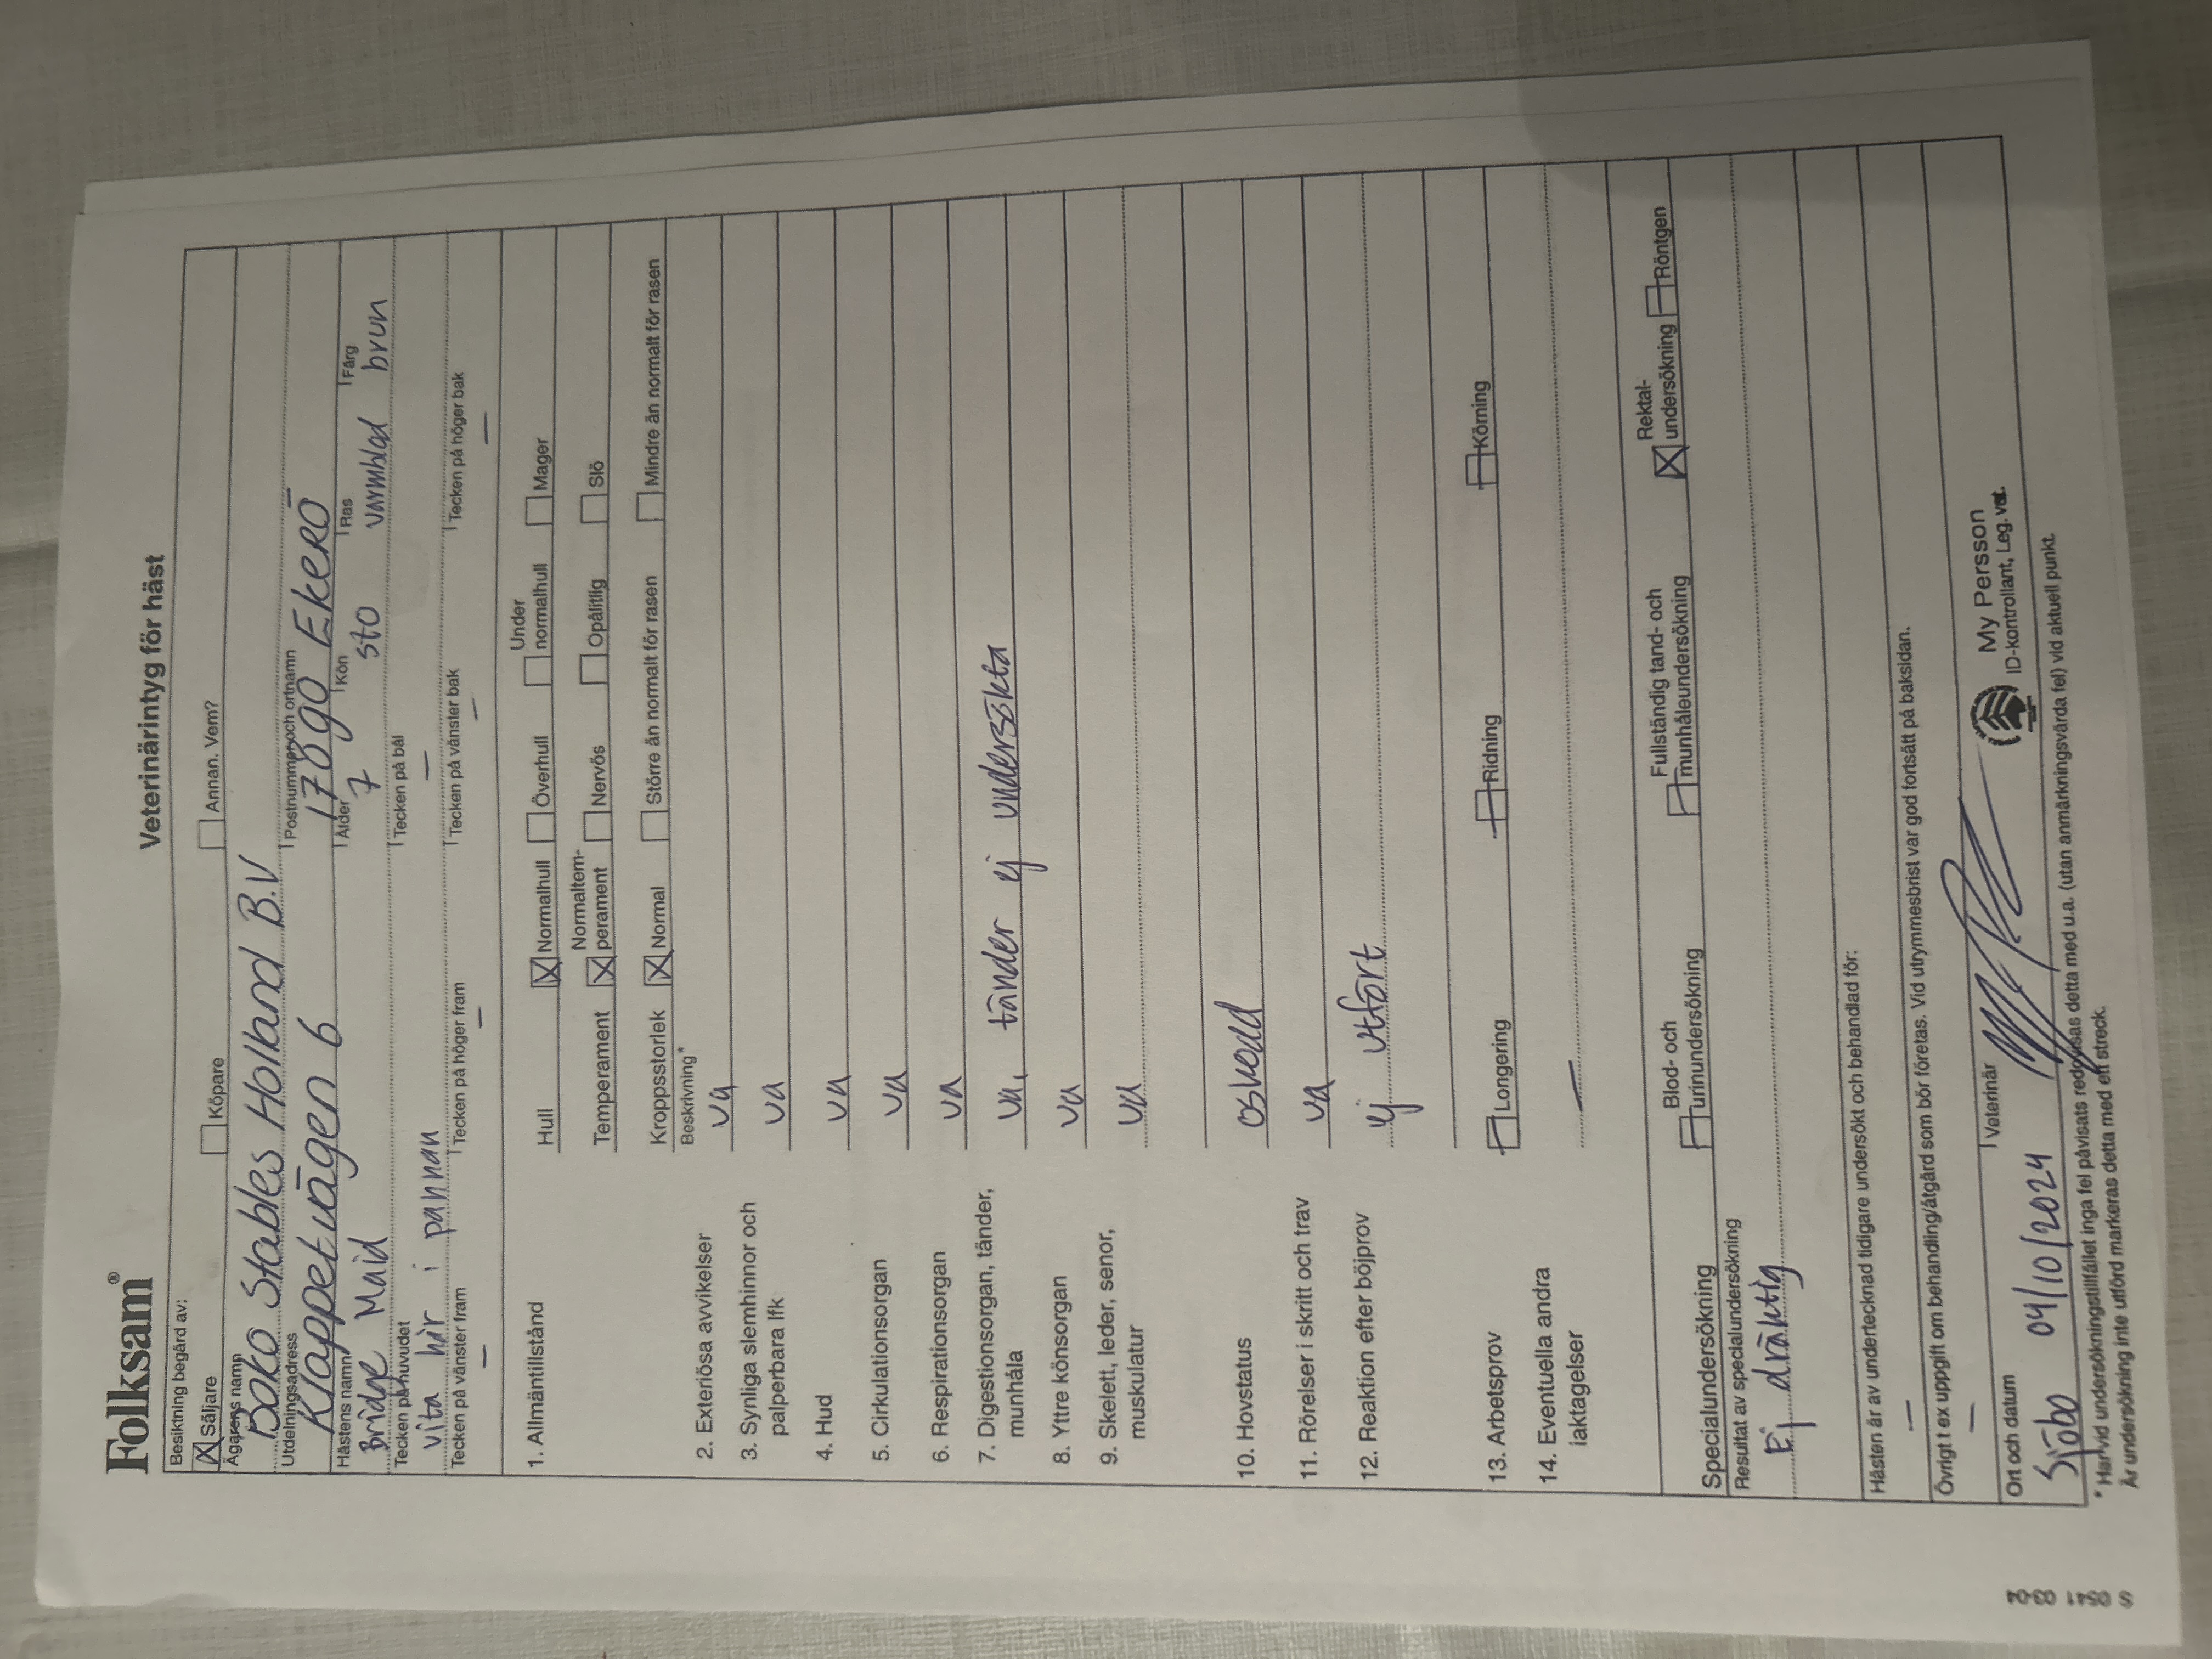 Folksam®
Veterinärintyg för häst
Besiktning begärd av:
Säljare Köpare Annan. Vem?
Ägarens namn
Boko Stables Holland B.V
Utdelningsadress Postnummer och ortnamn
Klappetvägen 6 17890 Ekerö
Hästens namn Ålder Kön Ras Färg
Bridge Maid 7 sto varmblod brun
Tecken på huvudet Tecken på bål
vita hår i pannan —
Tecken på vänster fram Tecken på höger fram Tecken på vänster bak Tecken på höger bak
— — — —
1. Allmäntillstånd Hull Normalhull Överhull Under normalhull Mager
Temperament Normaltem-perament Nervös Opålitlig Slö
Kroppsstorlek Normal Större än normalt för rasen Mindre än normalt för rasen
Beskrivning*
2. Exteriösa avvikelser ua
3. Synliga slemhinnor och
palperbara lfk ua
4. Hud ua
5. Cirkulationsorgan ua
6. Respirationsorgan ua
7. Digestionsorgan, tänder,
munhåla ua, tänder ej undersökta
8. Yttre könsorgan ua
9. Skelett, leder, senor,
muskulatur ua
10. Hovstatus oskodd
11. Rörelser i skritt och trav ua
12. Reaktion efter böjprov ej utfört
13. Arbetsprov Longering Ridning Körning
14. Eventuella andra
iakttagelser —
Specialundersökning Blod- och urinundersökning Fullständig tand- och munhåleundersökning Rektal-undersökning Röntgen
Resultat av specialundersökning
Ej dräktig
Hästen är av undertecknad tidigare undersökt och behandlad för:
—
Övrigt t ex uppgift om behandling/åtgärd som bör företas. Vid utrymmesbrist var god fortsätt på baksidan.
—
Ort och datum Veterinär
Sjöbo 04/10/2024
My Persson
ID-kontrollant, Leg. vet.
* Har vid undersökningstillfället inga fel påvisats redovisas detta med u.a. (utan anmärkningsvärda fel) vid aktuell punkt.
Är undersökning inte utförd markeras detta med ett streck.